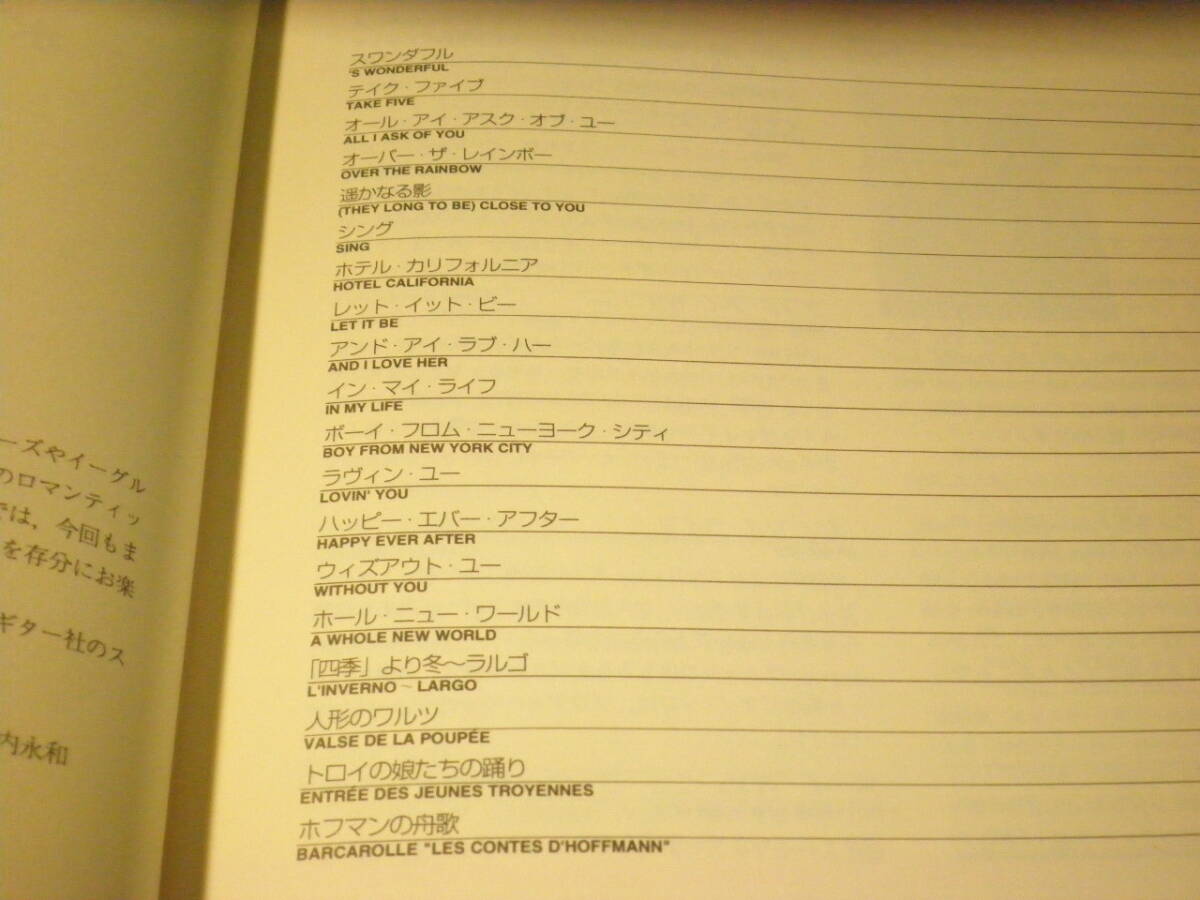 ーズやイーグル
のロマンティッ
では、今回もま
を存分にお楽
ギター社のス
内永和
スワンダフル
'S WONDERFUL
テイク・ファイブ
TAKE FIVE
オール・アイ・アスク・オブ・ユー
ALL I ASK OF YOU
オーバー・ザ・レインボー
OVER THE RAINBOW
遥かなる影
(THEY LONG TO BE) CLOSE TO YOU
シング
SING
ホテル・カリフォルニア
HOTEL CALIFORNIA
レット・イット・ビー
LET IT BE
アンド・アイ・ラブ・ハー
AND I LOVE HER
イン・マイ・ライフ
IN MY LIFE
ボーイ・フロム・ニューヨーク・シティ
BOY FROM NEW YORK CITY
ラヴィン・ユー
LOVIN' YOU
ハッピー・エバー・アフター
HAPPY EVER AFTER
ウィズアウト・ユー
WITHOUT YOU
ホール・ニュー・ワールド
A WHOLE NEW WORLD
「四季」より冬〜ラルゴ
L'INVERNO ~ LARGO
人形のワルツ
VALSE DE LA POUPÉE
トロイの娘たちの踊り
ENTRÉE DES JEUNES TROYENNES
ホフマンの舟歌
BARCAROLLE "LES CONTES D'HOFFMANN"